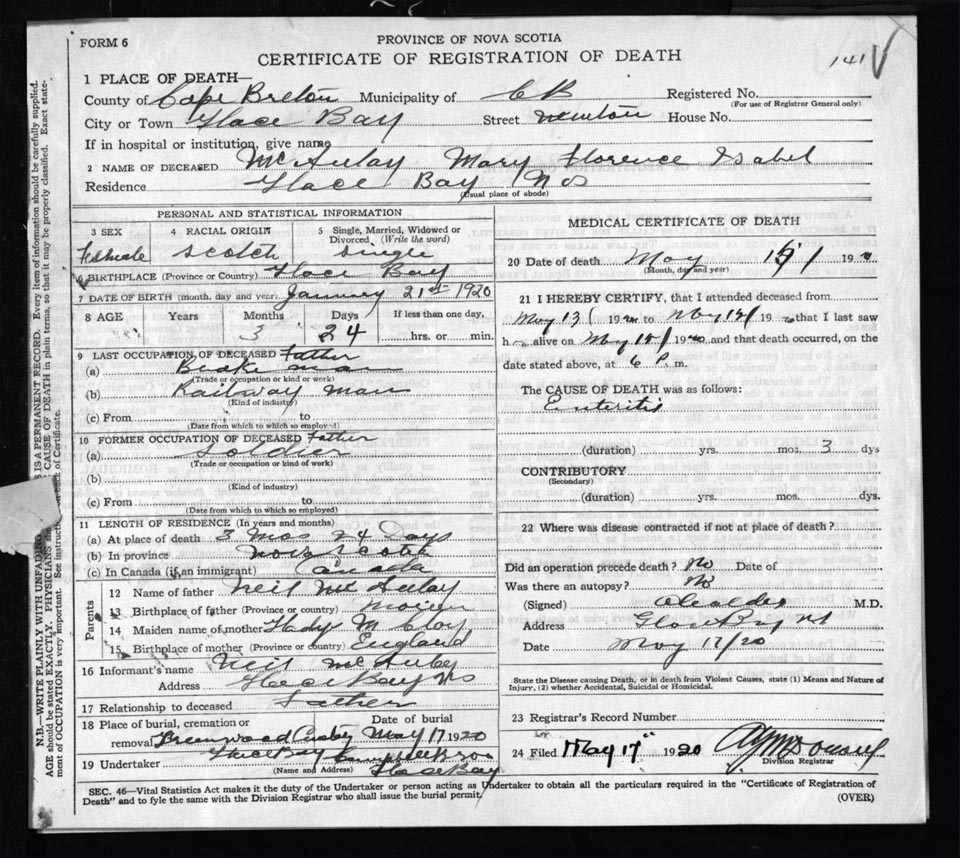 FORM 6
PROVINCE OF NOVA SCOTIA
CERTIFICATE OF REGISTRATION OF DEATH
141 V
1 PLACE OF DEATH—
County of Cape Breton Municipality of CB Registered No.
(For use of Registrar General only)
City or Town Glace Bay Street House No.
If in hospital or institution, give name
2 NAME OF DECEASED McAulay Mary Florence Isabel
Residence Glace Bay NS
(Usual place of abode)
PERSONAL AND STATISTICAL INFORMATION
3 SEX 4 RACIAL ORIGIN 5 Single, Married, Widowed or Divorced, (Write the word)
Female Scotch Single
6 BIRTHPLACE (Province or Country) Glace Bay
7 DATE OF BIRTH (month, day and year) January 21st 1920
8 AGE Years Months Days If less than one day,
3 24 hrs. or min.
9 LAST OCCUPATION OF DECEASED Father
(a) Brake man
(Trade or occupation or kind or work)
(b) Railway Man
(Kind of industry)
(c) From to
(Date from which to which so employed)
10 FORMER OCCUPATION OF DECEASED Father
(a) Soldier
(Trade or occupation or kind of work)
(b)
(Kind of industry)
(c) From to
(Date from which to which so employed)
11 LENGTH OF RESIDENCE (In years and months)
(a) At place of death 3 Mos 24 Days
(b) In province Nova Scotia
(c) In Canada (if an immigrant) Canada
Parents
12 Name of father Neil McAulay
13 Birthplace of father (Province or country)
14 Maiden name of mother
15 Birthplace of mother (Province or country) England
16 Informant's name Neil McAulay
Address Glace Bay NS
17 Relationship to deceased Father
18 Place of burial, cremation or removal Greenwood Date of burial May 17 1920
Glace Bay
19 Undertaker
(Name and Address) Glace Bay
MEDICAL CERTIFICATE OF DEATH
20 Date of death May 19
(Month, day and year)
21 I HEREBY CERTIFY, that I attended deceased from
May 13 1920 to May 192 that I last saw
h alive on May 1920 and that death occurred, on the
date stated above, at 6 P. m.
The CAUSE OF DEATH was as follows:
Enteritis
(duration) yrs. mos. 3 dys
CONTRIBUTORY
(Secondary)
(duration) yrs. mos. dys.
22 Where was disease contracted if not at place of death?
Did an operation precede death? No Date of
Was there an autopsy? No
(Signed) M.D.
Address Glace Bay NS
Date May 17/20
State the Disease causing Death, or in death from Violent Causes, state (1) Means and Nature of Injury, (2) whether Accidental, Suicidal or Homicidal.
23 Registrar's Record Number
24 Filed May 17" 1920
Division Registrar
SEC. 46—Vital Statistics Act makes it the duty of the Undertaker or person acting as Undertaker to obtain all the particulars required in the "Certificate of Registration of
Death" and to fyle the same with the Division Registrar who shall issue the burial permit.
(OVER)
N.B.—WRITE PLAINLY WITH UNFADING IS A PERMANENT RECORD. Every item of information should be carefully supplied.
AGE should be stated EXACTLY. PHYSICIANS CAUSE OF DEATH in plain terms, so that it may be properly classified. Exact state-
ment of OCCUPATION is very important. See instruct of Certificate.